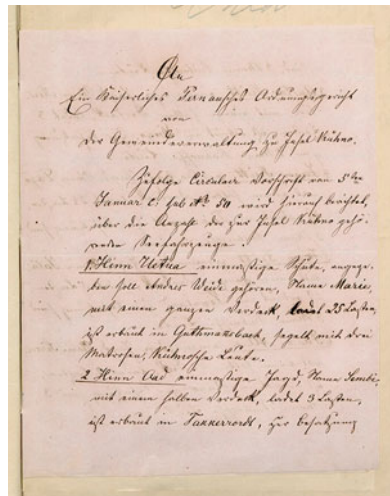 An
Ein Kaiserliches Pernausches Ordnungsgericht
von
der Gemeindeverwaltung zu Insel Kühno.
Zufolge Circulair Vorschrift vom 5ten
Januar c. sub № 50 wird hierauf berichtet,
über die Anzahl der zur Insel Kühno gehö-
renden Seefahrzeuge:
1, Hinn Uetua einmastige Schute, angege-
ben soll Andres Weide gehören, Name Marie,
mit einem ganzen Verdeck, ladet 25 Lasten,
ist erbaut in Guthmannsbach, segelt mit drei
Matrosen, Kühnosche Leute.
2 Hinn Aad einmastige Jagd, Name
mit einem halben Verdeck, ladet 3 Lasten,
ist erbaut in Tackerrordt, zur Besatzung